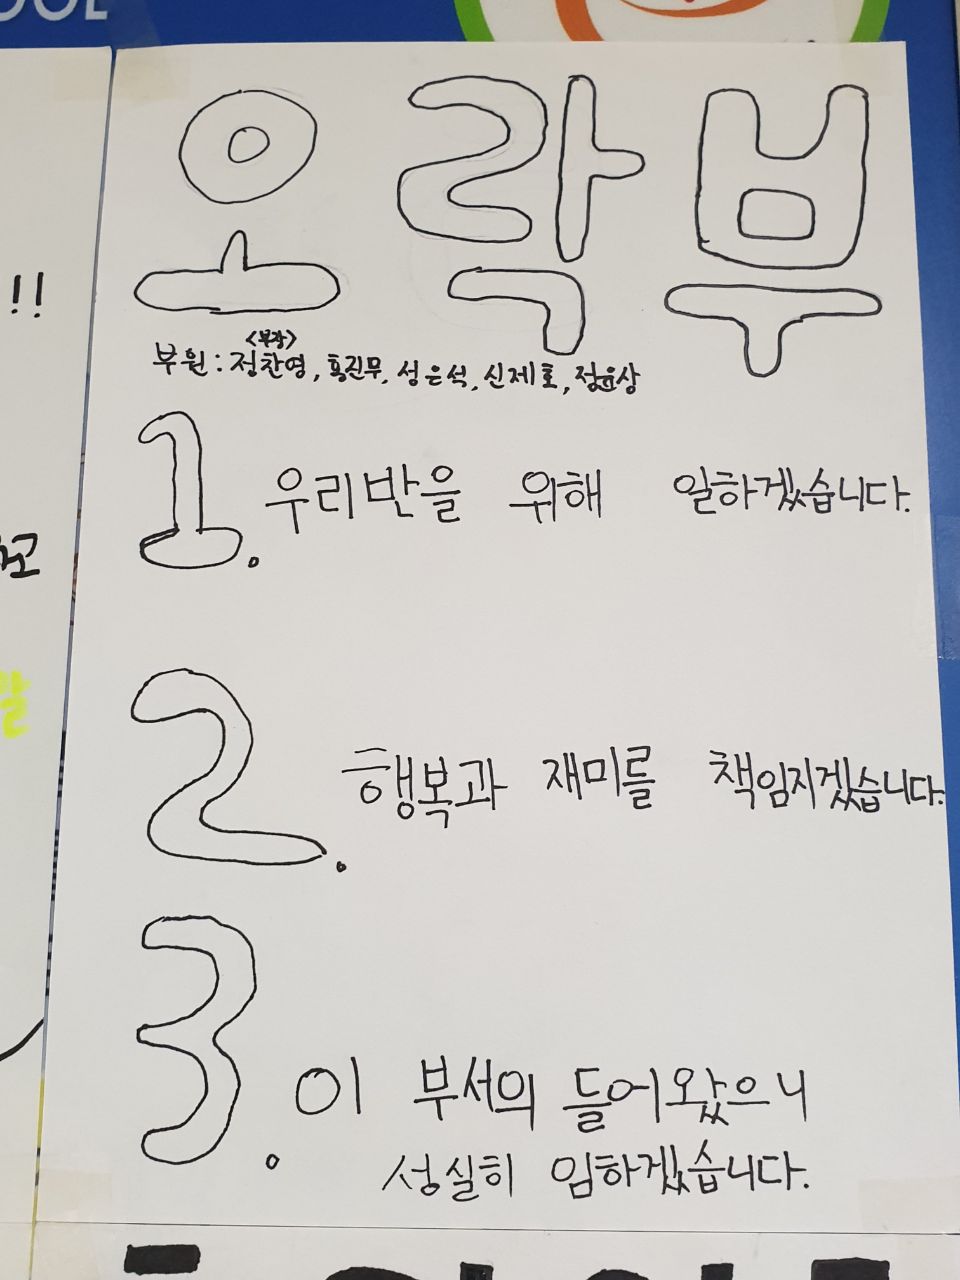 OOL
오락부
<부장>
부원 : 정찬영, 홍진무, 성은석, 신제호, 정윤상
1. 우리반을 위해 일하겠습니다.
2. 행복과 재미를 책임지겠습니다.
3. 이 부서의 들어왔으니
성실히 임하겠습니다.
!!